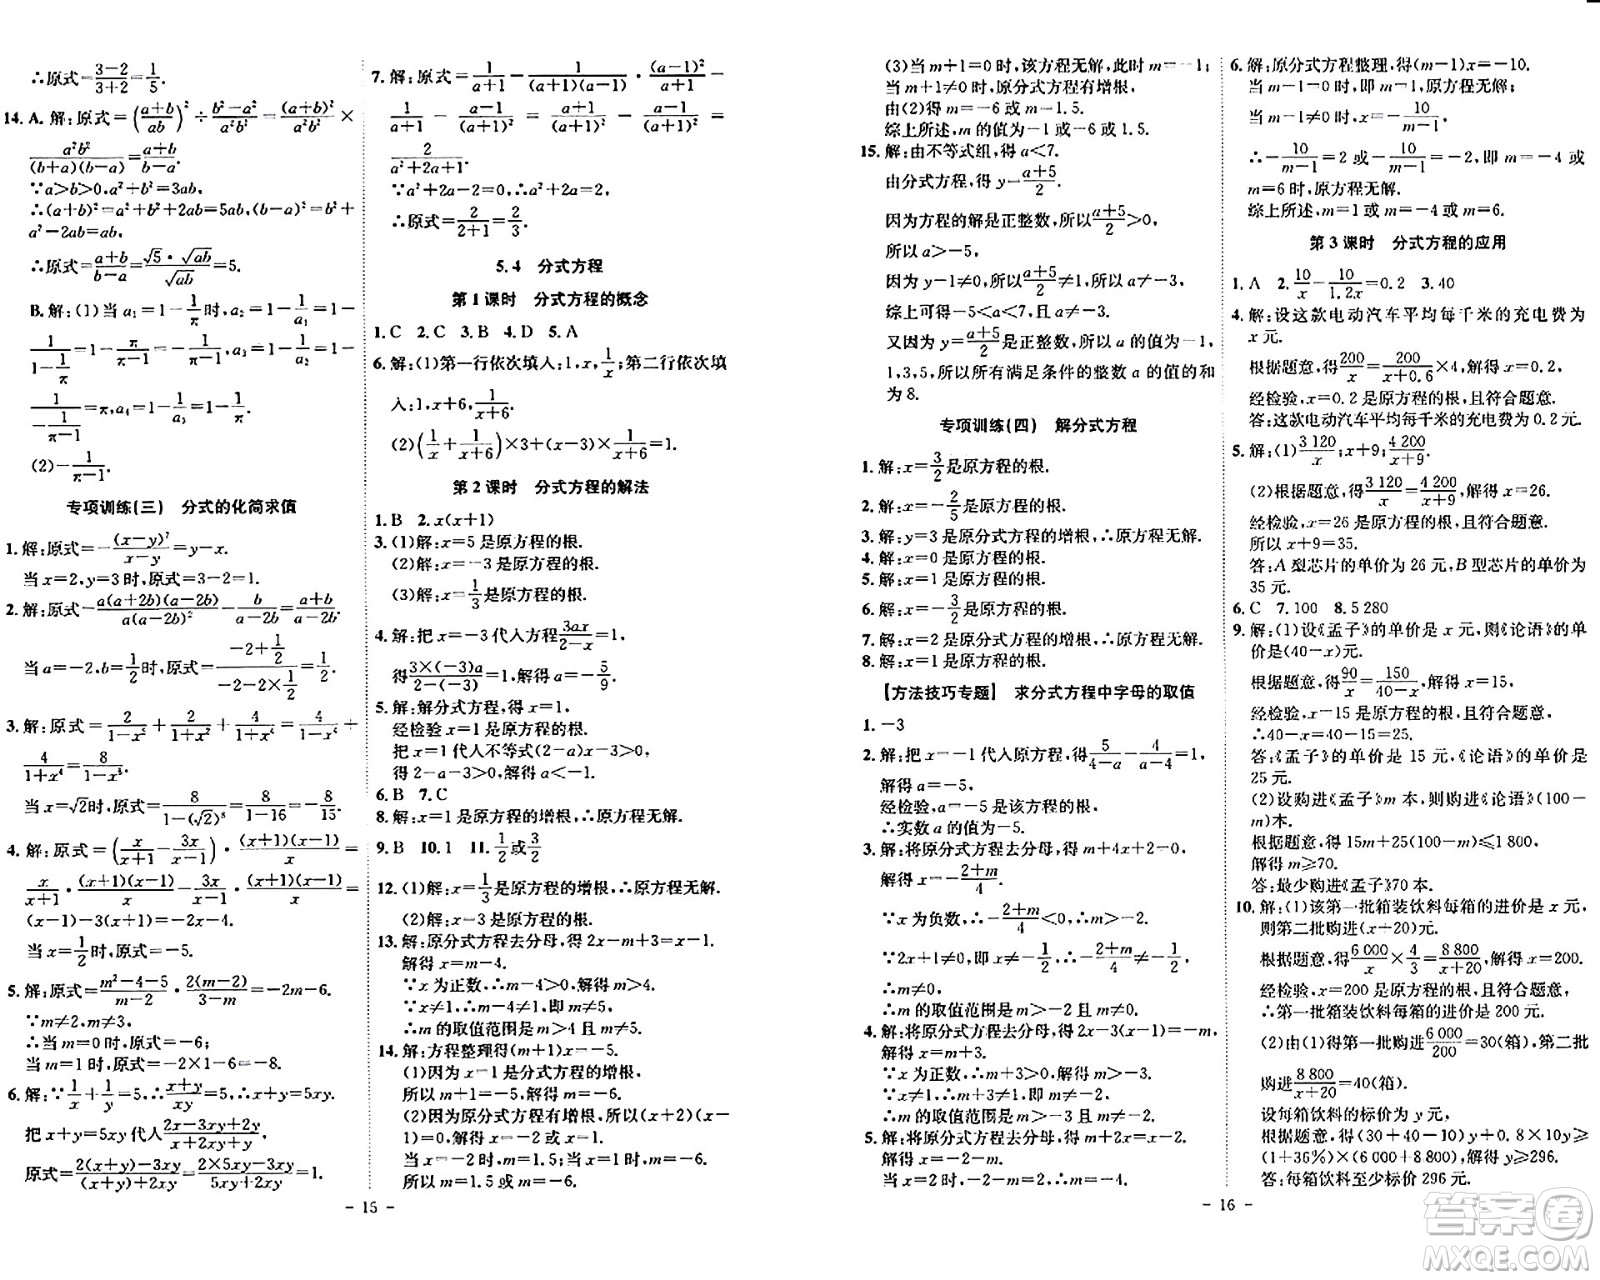 ∴原式=\frac{3-2}{3+2}=\frac{1}{5}.
14.A.解:原式=(\frac{a+b}{ab})²÷\frac{b²-a²}{a²b²}=\frac{(a+b)²}{a²b²}×
\frac{a²b²}{(b+a)(b-a)}=\frac{a+b}{b-a}.
∵a>b>0,a²+b²=3ab,
∴(a+b)²=a²+b²+2ab=5ab,(b-a)²=b²+
a²-2ab=ab.
∴原式=\frac{a+b}{b-a}=\frac{√5·√ab}{√ab}=5.
B.解:(1)当a₁=1-\frac{1}{π}时,a₂=\frac{1}{1-a₁}=
\frac{1}{1-1-\frac{1}{π}}=1-\frac{π}{π-1}=-\frac{1}{π-1},a₃=\frac{1}{1-a₂}=
\frac{1}{-\frac{1}{π-1}}=π,a₄=1-\frac{1}{a₃}=1-\frac{1}{π}.
(2)-\frac{1}{π-1}.
专项训练(三) 分式的化简求值
1.解:原式=-\frac{(x-y)²}{x-y}=y-x.
当x=2,y=3时,原式=3-2=1.
2.解:原式-\frac{a(a+2b)(a-2b)}{a(a-2b)²}-\frac{b}{a-2b}=\frac{a+b}{a-2b}.
当a=-2,b=\frac{1}{2}时,原式=\frac{-2+\frac{1}{2}}{-2-2×\frac{1}{2}}=\frac{1}{2}.
3.解:原式=\frac{2}{1-x²}+\frac{2}{1+x²}+\frac{4}{1+x⁴}=\frac{4}{1-x⁴}+
\frac{4}{1+x⁴}=\frac{8}{1-x⁸}.
当x=√2时,原式=\frac{8}{1-(√2)⁸}=\frac{8}{1-16}=-\frac{8}{15}.
4.解:原式=(\frac{x}{x+1}-\frac{3x}{x-1})·\frac{(x+1)(x-1)}{x}=
\frac{x}{x+1}·\frac{(x+1)(x-1)}{x}-\frac{3x}{x-1}·\frac{(x+1)(x-1)}{x}=
(x-1)-3(x+1)=-2x-4.
当x=\frac{1}{2}时,原式=-5.
5.解:原式=\frac{m²-4-5}{m-2}·\frac{2(m-2)}{3-m}=-2m-6.
∵m≠2,m≠3,
∴当m=0时,原式=-6.
当m=1时,原式=-2×1-6=-8.
6.解:∵\frac{1}{x}+\frac{1}{y}=5,∴\frac{x+y}{xy}=5,∴x+y=5xy.
把x+y=5xy代入\frac{2x-3xy+2y}{x+2xy+y},
原式=\frac{2(x+y)-3xy}{x+y+2xy}=\frac{2×5xy-3xy}{5xy+2xy}=1.
7.解:原式=\frac{1}{a+1}-\frac{1}{(a+1)(a-1)}·\frac{(a-1)²}{a+1}=
\frac{1}{a+1}-\frac{a-1}{(a+1)²}=\frac{a+1}{(a+1)²}-\frac{a-1}{(a+1)²}=
\frac{2}{a²+2a+1}.
∵a²+2a-2=0,∴a²+2a=2.
∴原式=\frac{2}{2+1}=\frac{2}{3}.
5.4 分式方程
第1课时 分式方程的概念
1.C 2.C 3.B 4.D 5.A
6.解:(1)第一行依次填入:1,x,\frac{1}{x};第二行依次填
入:1,x+6,\frac{1}{x+6}.
(2)(\frac{1}{x}+\frac{1}{x+6})×3+(x-3)×\frac{1}{x+6}=1.
第2课时 分式方程的解法
1.B 2.x(x+1)
3.(1)解:x=5是原方程的根.
(2)解:x=-3是原方程的根.
(3)解:x=\frac{1}{3}是原方程的根.
4.解:把x=-3代入方程\frac{3ax}{2-x}=1,
得\frac{3×(-3)a}{2-(-3)}=1,解得a=-\frac{5}{9}.
5.解:解分式方程,得x=1.
经检验x=1是原方程的根.
把x=1代入不等式(2-a)x-3>0,
得2-a-3>0,解得a<-1.
6.B 7.C
8.解:x=1是原方程的增根,∴原方程无解.
9.B 10.1 11.\frac{1}{2}或\frac{3}{2}
12.(1)解:x=\frac{1}{3}是原方程的增根,∴原方程无解.
(2)解:x-3是原方程的根.
13.解:原分式方程去分母,得2x-m+3=x-1.
解得x=m-4.
∵x为正数,∴m-4>0,解得m>4.
∵x≠1,∴m-4≠1,即m≠5.
∴m的取值范围是m>4且m≠5.
14.解:方程整理得(m+1)x=-5.
(1)因为x-1是分式方程的增根,
所以m+1=-5,解得m=-6.
(2)因为原分式方程有增根,所以(x+2)(x-
1)=0,解得x=-2或x=1.
当x=-2时,m=1.5;当x=1时,m=-6.
所以m=1.5或m=-6.
- 15 -
(3)当m+1=0时,该方程无解,此时m=-1.
当m+1≠0时,原分式方程有增根.
由(2)得m=-6或m=1.5.
综上所述,m的值为-1或-6或1.5.
15.解:由不等式组,得a<7.
由分式方程,得y-\frac{a+5}{2}.
因为方程的解是正整数,所以\frac{a+5}{2}>0,
所以a>-5,
因为y-1≠0,所以\frac{a+5}{2}≠1,所以a≠-3,
综上可得-5<a<7,且a≠-3.
又因为y=\frac{a+5}{2}是正整数,所以a的值为-1,
1,3,5,所以所有满足条件的整数a的值的和
为8.
专项训练(四) 解分式方程
1.解:x=\frac{3}{2}是原方程的根.
2.解:x=-\frac{2}{5}是原方程的根.
3.解:y=3是原分式方程的增根,∴原方程无解.
4.解:x=0是原方程的根.
5.解:x=1是原方程的根.
6.解:x=-\frac{3}{2}是原方程的根.
7.解:x=2是原分式方程的增根,∴原方程无解.
8.解:x=1是原方程的根.
【方法技巧专题】 求分式方程中字母的取值
1.-3
2.解:把x--1代入原方程,得\frac{5}{4-a}-\frac{4}{a-4}=1,
解得a=-5.
经检验,a--5是该方程的根.
∴实数a的值为-5.
3.解:将原分式方程去分母,得4x+m+2=0.
解得x=-\frac{2+m}{4}.
∵x为负数,∴-\frac{2+m}{4}<0,∴m>-2.
∵2x+1≠0,即x≠-\frac{1}{2},∴-\frac{2+m}{4}≠-\frac{1}{2},
∴m≠0.
∴m的取值范围是m>-2且m≠0.
4.解:将原分式方程去分母,得2x-3(x-1)=-m,
解得x=m+3.
∵x为正数,∴m+3>0,∴m>-3.
∵x≠1,∴m+3≠1,∴m≠-2.
∴m的取值范围是m>-3且m≠-2.
5.解:将原分式方程去分母,得x+m=-2,
解得x=-2-m.
当x=2时,-2-m=2,解得m=-4.
6.解:原分式方程整理,得(m-1)x=-10.
当m-1=0时,即m=1时,原方程无解;
当m-1≠0时,x=-\frac{10}{m-1}.
∴-\frac{10}{m-1}=2或-\frac{10}{m-1}=-2,即m=-4或
m=6时,原方程无解.
综上所述,m=1或m=-4或m=6.
第3课时 分式方程的应用
1.A 2.\frac{10}{x}-\frac{10}{1.2x}=0.2 3.40
4.解:设这款电动汽车平均每千米的充电费为
x元.
根据题意,得\frac{200}{x}=\frac{200}{x+0.6}×4,解得x=0.2,
经检验,x=0.2是原方程的根,且符合题意.
答:这款电动汽车平均每千米的充电费为0.2元.
5.解:(1)\frac{3 120}{x};x+9;\frac{4 200}{x+9}.
(2)根据题意,得\frac{3 120}{x}=\frac{4 200}{x+9},解得x=26.
经检验,x=26是原方程的根,且符合题意.
所以x+9=35.
答:A型芯片的单价为26元,B型芯片的单价为
35元.
6.C 7.100 8.5 280
9.解:(1)设《孟子》的单价是x元,则《论语》的单
价是(40-x)元.
根据题意,得\frac{90}{x}=\frac{150}{40-x},解得x=15,
经检验,x-15是原方程的根,且符合题意,
∴40-x=40-15=25.
答:《孟子》的单价是15元,《论语》的单价是
25元.
(2)设购进《孟子》m本,则购进《论语》(100-
m)本.
根据题意,得15m+25(100-m)≤1 800,
解得m≥70.
答:最少购进《孟子》70本.
10.解:(1)该第一批箱装饮料每箱的进价是x元,
则第二批购进(x+20)元.
根据题意,得\frac{6 000}{x}×\frac{4}{3}=\frac{8 800}{x+20},解得x=200.
经检验,x=200是原方程的根,且符合题意,
∴第一批箱装饮料每箱的进价是200元.
(2)由(1)得第一批购进\frac{6 000}{200}=30(箱),第二批
购进\frac{8 800}{x+20}=40(箱).
设每箱饮料的标价为y元,
根据题意,得(30+40-10)y+0.8×10y≥
(1+36%)×(6 000+8 800),解得y≥296.
答:每箱饮料至少标价296元.
- 16 -
答案圈
MXQE.COM